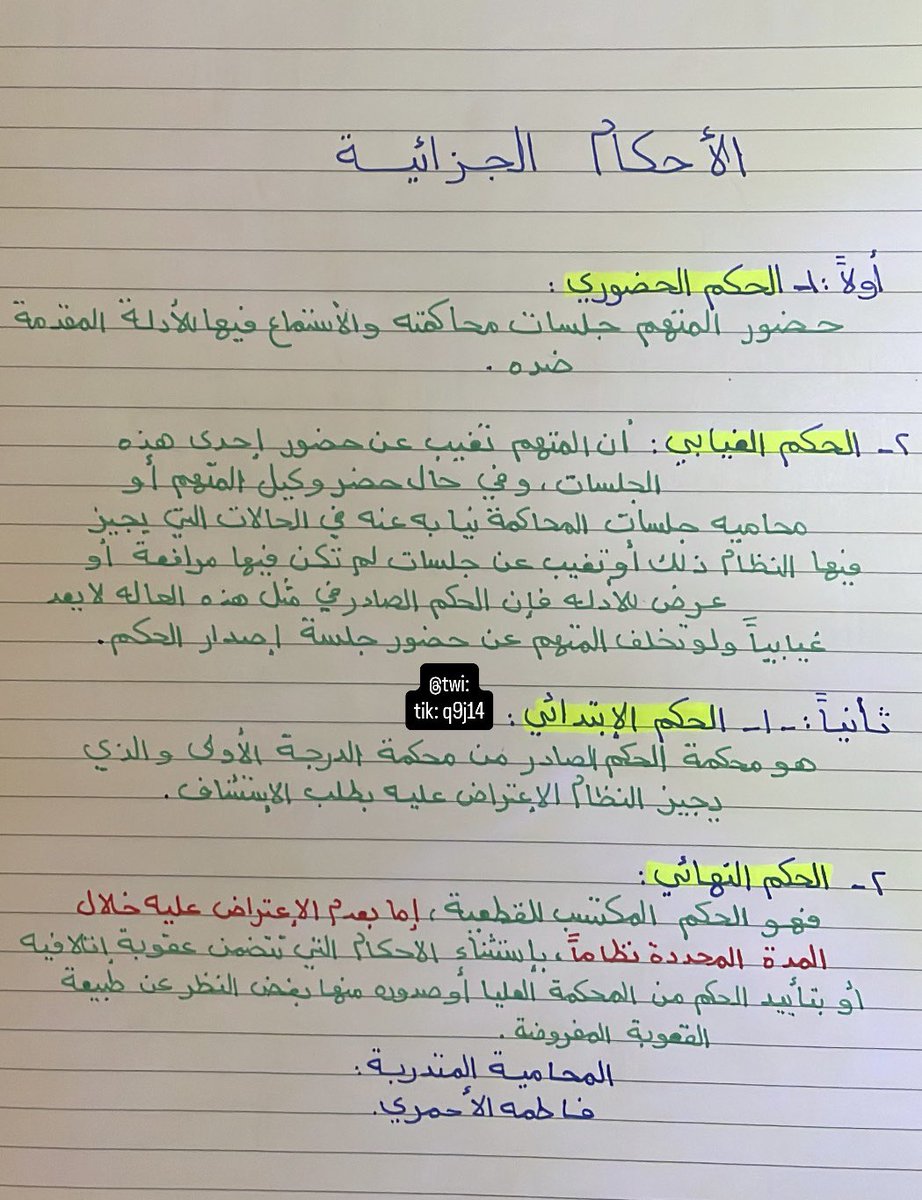 الأحكام الجزائية
أولاً :١- الحكم الحضوري :
حضور المتهم جلسات محاكمته والأستماع فيها للأدلة المقدمة
ضده .
٢- الحكم الغيابي : أن المتهم تغيب عن حضور إحدى هذه
الجلسات ، وفي حال حضر وكيل المتهم أو
محاميه جلسات المحاكمة نيابه عنه في الحالات التي يجيز
فيها النظام ذلك أو تغيب عن جلسات لم تكن فيها مرافعة أو
عرض للأدله فإن الحكم الصادر في مثل هذه الحاله لا يعد
غيابياً ولو تخلف المتهم عن حضور جلسة إصدار الحكم .
@twi:
tik: q9j14
ثانياً :- ١- الحكم الإبتدائي :
هو محكمة الحكم الصادر من محكمة الدرجة الأولى والذي
يجيز النظام الإعتراض عليه بطلب الإستئناف .
٢- الحكم النهائي :
فهو الحكم المكتسب للقطعية ، إما بعدم الإعتراض عليه خلال
المدة المحددة نظاماً ، بإستثناء الاحكام التي تتضمن عقوبة إتلافيه
أو بتأييد الحكم من المحكمة العليا أو صدوره منها بغض النظر عن طبيعة
العقوبة المفروضة .
المحامية المتدربة :
فاطمه الأحمري .